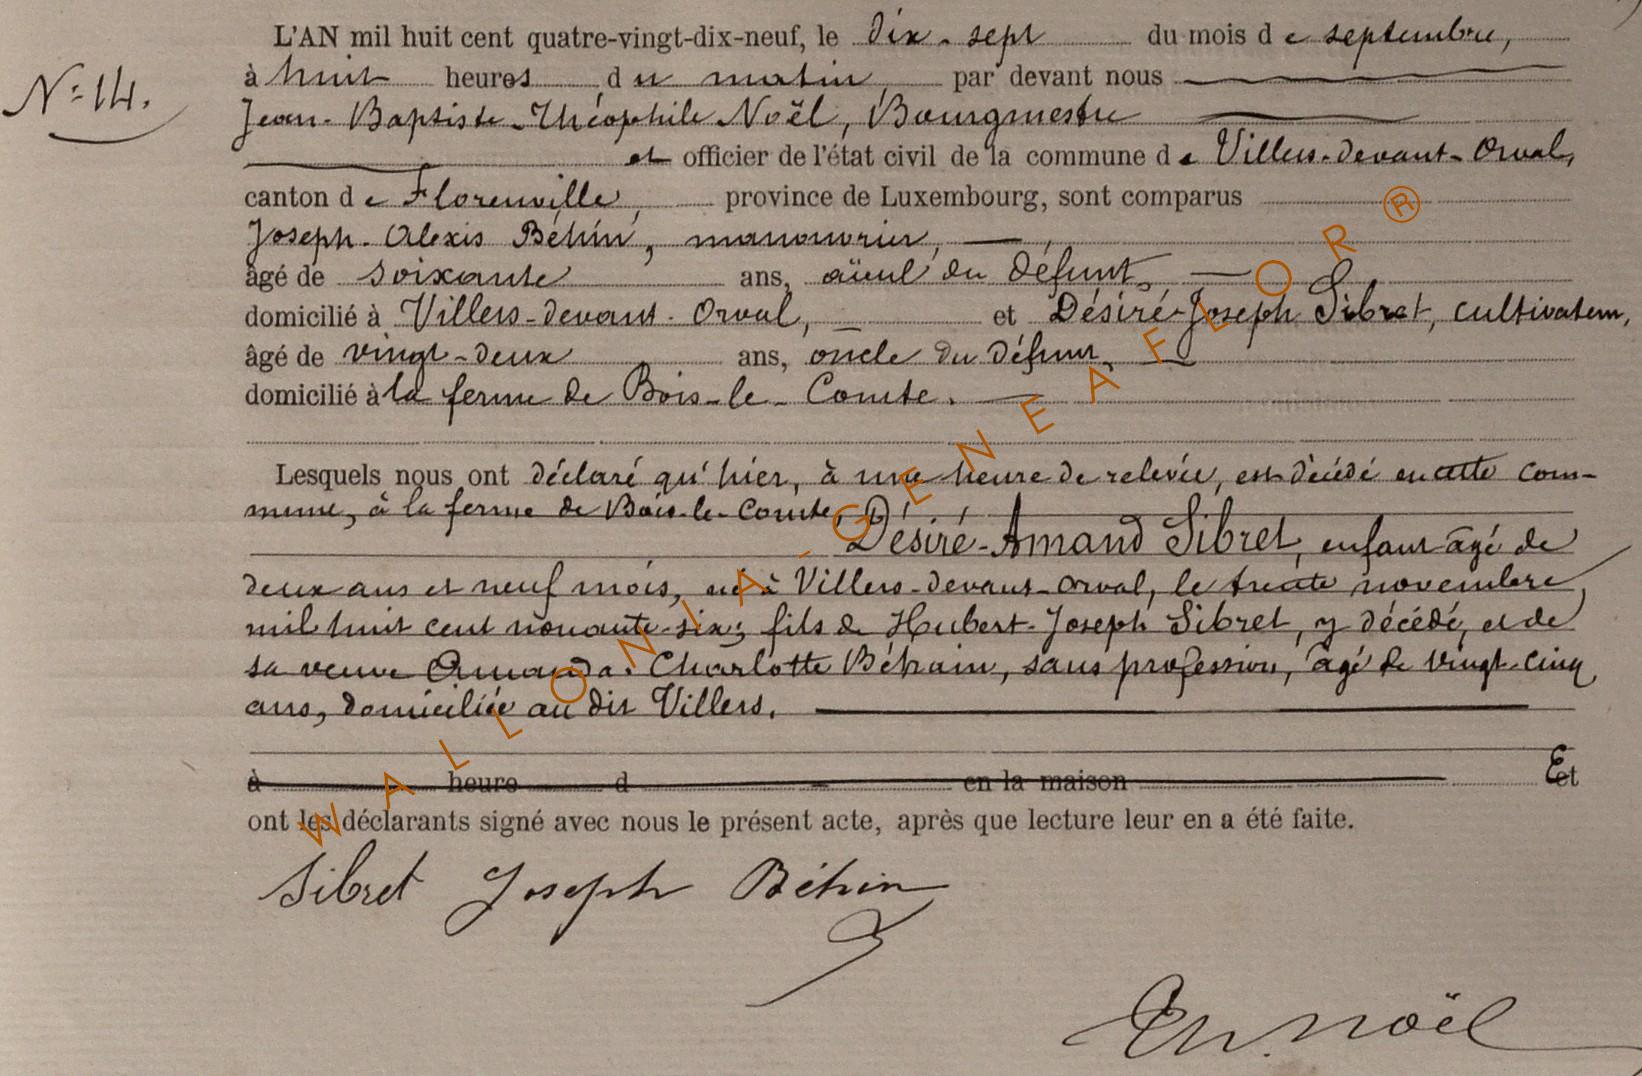 L'AN mil huit cent quatre-vingt-dix-neuf, le dix-sept du mois de septembre,
N: 14.
à huit heures du matin, par devant nous
Jean-Baptiste-Théophile Noël, Bourgmestre
et officier de l'état civil de la commune de Villers-devant-Orval,
canton de Florenville, province de Luxembourg, sont comparus
Joseph-Alexis Béhin, manouvrier,
âgé de soixante ans, aïeul du défunt,
domicilié à Villers-devant-Orval, et Désiré-Joseph Sibret, cultivateur,
âgé de vingt-deux ans, oncle du défunt,
domicilié à la ferme de Bois-le-Comte.
Lesquels nous ont déclaré qu'hier, à une heure de relevée, est décédé en cette com-
mune, à la ferme de Bois-le-Comte,
Désiré-Amand Sibret, enfant âgé de
deux ans et neuf mois, né à Villers-devant-Orval, le trente novembre
mil huit cent nonante-six; fils de Hubert-Joseph Sibret, y décédé, et de
sa veuve Amanda-Charlotte Béhain, sans profession, âgé de vingt-cinq
ans, domiciliée au dit Villers.
à heure d en la maison Et
ont les déclarants signé avec nous le présent acte, après que lecture leur en a été faite.
Sibret Joseph Béhin
Th. Noël
WALLONIA-GENEAFLOR®